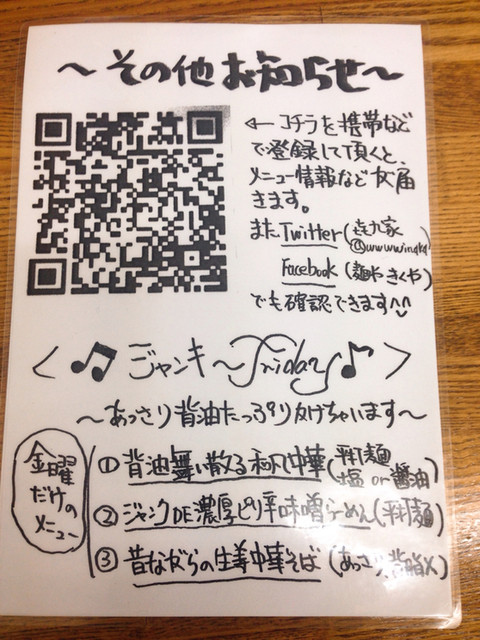 ～その他お知らせ～
←コチラを携帯など
で登録して頂くと、
メニュー情報など届
きます。
またTwitter(㐂九家
@wwwwina
Facebook(麺や きくや)
でも確認できます^^
<♫ジャンキ～Friday♪>
～あっさり背油たっぷりかけちゃいます～
金曜
だけの
メニュー
①背油舞い散る和風中華(平打麺
塩or醤油)
②ジャンクDE濃厚ピリ辛味噌らーめん(平打麺)
③昔ながらの生姜中華そば(あっさり、背脂✕)